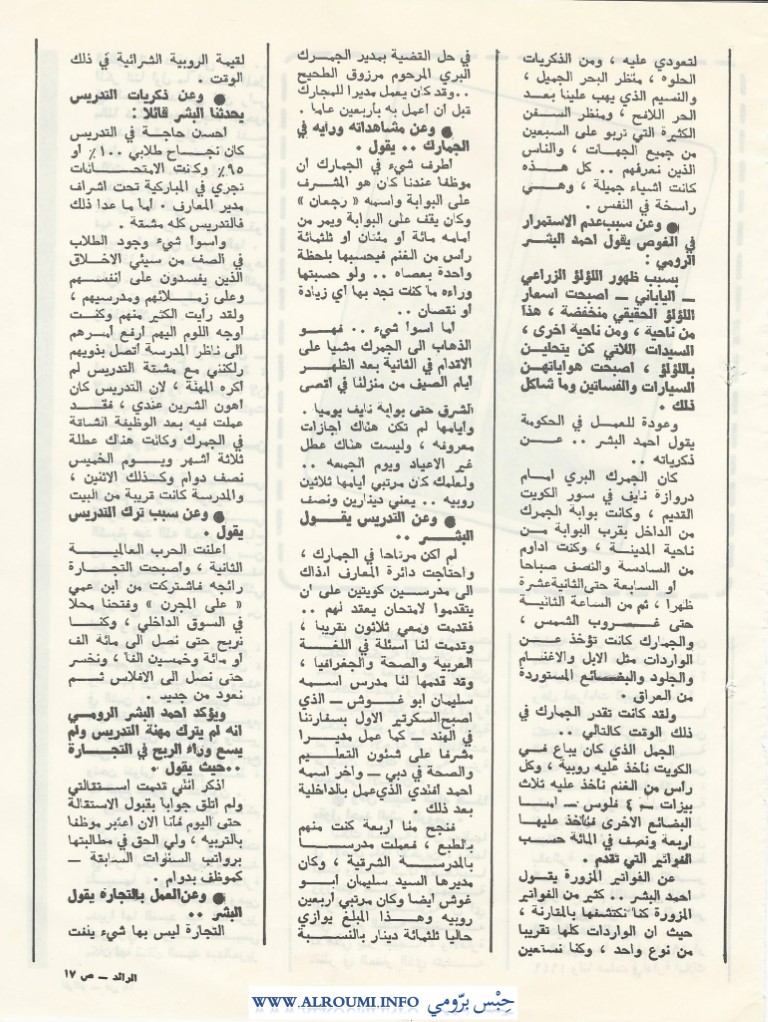 لتعودي عليه ، ومن الذكريات
الحلوه ، منظر البحر الجميل ،
والنسيم الذي يهب علينا بعد
الحر اللافح ، ومنظر السفن
الكثيرة التي تربو على السبعين
من جميع الجهات ، والناس
الذين نعرفهم .. كل هذه
كانت اشياء جميلة ، وهي
راسخة في النفس .
● وعن سبب عدم الاستمرار
في الغوص يقول احمد البشر
الرومي :
بسبب ظهور اللؤلؤ الزراعي
— الياباني — اصبحت اسعار
اللؤلؤ الحقيقي منخفضة ، هذا
من ناحية ، ومن ناحية اخرى ،
السيدات اللاتي كن يتحلين
باللؤلؤ ، اصبحت هواياتهن
السيارات والفساتين وما شاكل
ذلك .
وعودة للعمل في الحكومة
يقول احمد البشر .. عن
ذكرياته ..
كان الجمرك البري امام
دروازة نايف في سور الكويت
القديم ، وكانت بوابة الجمرك
من الداخل بقرب البوابة من
ناحية المدينة ، وكنت اداوم
من السادسة والنصف صباحا
أو السابعة حتى الثانية عشرة
ظهرا ، ثم من الساعة الثانية
حتى غروب الشمس ،
والجمارك كانت تؤخذ عن
الواردات مثل الابل والاغنام
والجلود والبضائع المستوردة
من العراق .
ولقد كانت تقدر الجمارك في
ذلك الوقت كالتالي ..
الجمل الذي كان يباع في
الكويت نأخذ عليه روبية ، وكل
رأس من الغنم نأخذ عليه ثلاث
بيزات — ٤ فلوس — اما
البضائع الاخرى فنأخذ عليها
اربعة ونصف في المائة حسب
الفواتير التي تقدم .
عن الفواتير المزورة يقول
احمد البشر .. كثير من الفواتير
المزورة كنا نكتشفها بالمقارنة ،
حيث ان الواردات كلها تقريبا
من نوع واحد ، وكنا نستعين
في حل القضية بمدير الجمرك
البري المرحوم مرزوق الطحيح
.. وقد كان يعمل مديرا للجمارك
قبل ان اعمل به بأربعين عاما .
● وعن مشاهداته ورايه في
الجمارك .. يقول .
اطرف شيء في الجمارك ان
موظفا عندنا كان هو المشرف
على البوابة واسمه « رجعان »
وكان يقف على البوابة ويمر من
امامه مائة او مئتان او ثلثمائة
رأس من الغنم فيحسبها بلحظة
واحدة بعصاه .. ولو حسبتها
وراءه ما كنت تجد بها أي زيادة
أو نقصان ..
اما اسوأ شيء .. فهو
الذهاب الى الجمرك مشيا على
الاقدام في الثانية بعد الظهر
ايام الصيف من منزلنا في اقصى
الشرق حتى بوابة نايف يوميا .
وايامها لم تكن هناك اجازات
معروفه ، وليست هناك عطل
غير الاعياد ويوم الجمعه ..
ولعلمك كان مرتبي ايامها ثلاثين
روبيه .. يعني دينارين ونصف
● وعن التدريس يقول
البشر ..
لم اكن مرتاحا في الجمارك ،
واحتاجت دائرة المعارف انذاك
الى مدرسين كويتين على ان
يتقدموا لامتحان يعقد لهم ..
فقدمت ومعي ثلاثون تقريبا ،
وقدمت لنا اسئلة في اللغة
العربية والصحة والجغرافيا ،
وقد قدمها لنا مدرس اسمه
سليمان ابو غوش — الذي
اصبح السكرتير الاول بسفارتنا
في الهند — كما عمل مديرا
مشرفا على شئون التعليم
والصحة في دبي — وآخر اسمه
احمد افندي الذي عمل بالداخلية
بعد ذلك .
فنجح منا اربعة كنت منهم
بالطبع ، فعملت مدرسا
بالمدرسة الشرقية ، وكان
مديرها السيد سليمان ابو
غوش ايضا وكان مرتبي اربعين
روبيه وهذا المبلغ يوازي
حاليا ثلثمائة دينار بالنسبة
لقيمة الروبية الشرائية في ذلك
الوقت .
● وعن ذكريات التدريس
يحدثنا البشر قائلا :
احسن حاجة في التدريس
كان نجاح طلابي ١٠٠٪ أو
٩٥٪ وكانت الامتحانات
تجري في المباركية تحت اشراف
مدير المعارف . اما ما عدا ذلك
فالتدريس كله مشقة .
واسوأ شيء وجود الطلاب
في الصف من سيئي الاخلاق
الذين يفسدون على انفسهم
وعلى زملائهم ومدرسيهم ،
ولقد رأيت الكثير منهم وكنت
اوجه اللوم اليهم ارفع امرهم
الى ناظر المدرسة اتصل بذويهم
ولكنني مع مشقة التدريس لم
اكره المهنة ، لان التدريس كان
اهون الشرين عندي ، فقد
عملت فيه بعد الوظيفة الشاقة
في الجمرك وكانت هناك عطلة
ثلاثة اشهر ويوم الخميس
نصف دوام وكذلك الاثنين ،
والمدرسة كانت قريبة من البيت
● وعن سبب ترك التدريس
يقول .
اعلنت الحرب العالمية
الثانية ، واصبحت التجارة
رائجه فاشتركت من ابن عمي
« على المجرن » وفتحنا محلا
في السوق الداخلي ، وكنا
نربح حتى نصل الى مائة الف
او مائة وخمسين الفا ، ونخسر
حتى نصل الى الافلاس ثم
نعود من جديد .
ويؤكد احمد البشر الرومي
انه لم يترك مهنة التدريس ولم
يسع وراء الربح في التجارة
.. حيث يقول .
اذكر انني قدمت استقالتي
ولم اتلق جوابا بقبول الاستقالة
حتى اليوم فأنا الان اعتبر موظفا
بالتربيه ، ولي الحق في مطالبتها
برواتب السنوات السابقة —
كموظف بدوام .
● وعن العمل بالتجاره يقول
البشر ..
التجارة ليس بها شيء يلفت
الرائد — ص ١٧
حِبْس برّومي WWW.ALROUMI.INFO